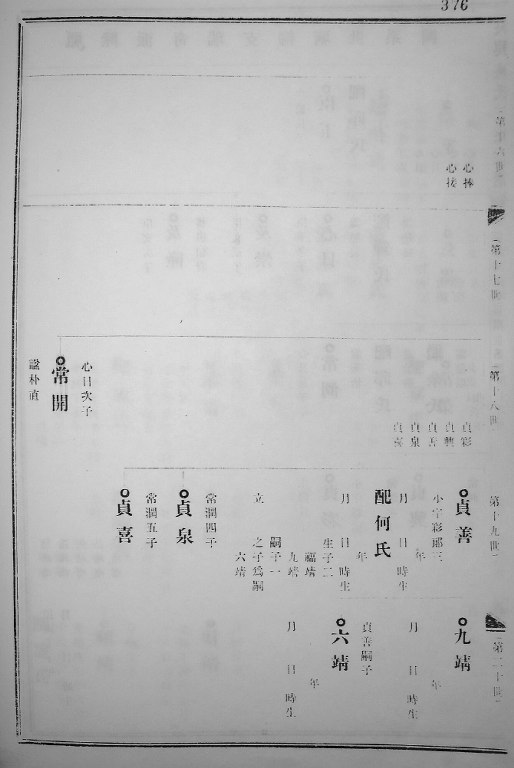 376
第十六世
心捧
心接
第十七世
第十八世
貞彩
貞興
貞善
貞泉
貞喜
心日次子
常開
諡朴直
第十九世
貞善
小字彩郎三
年
月 日 時生
配何氏
年
月 日 時生
生子二
福靖
九靖
嗣子一
立 之子爲嗣
六靖
常潤四子
貞泉
常潤五子
貞喜
第二十世
九靖
年
月 日 時生
貞善嗣子
六靖
年
月 日 時生